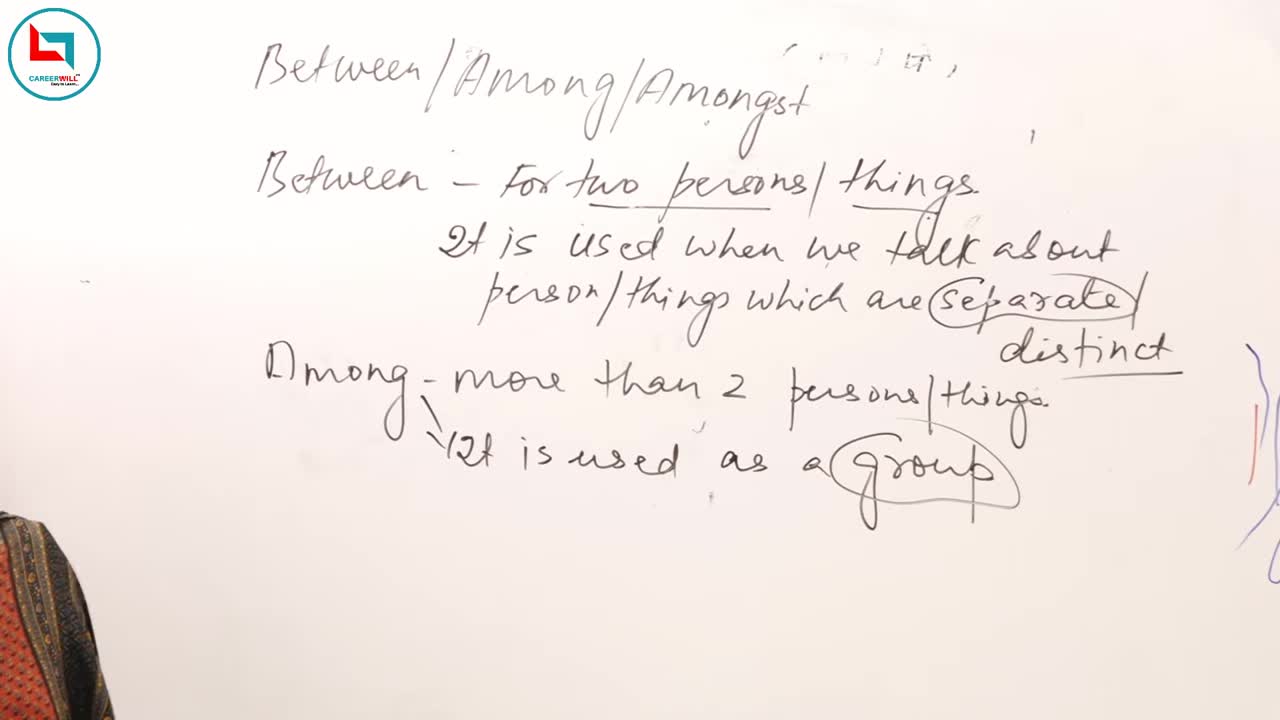 CAREERWILL
Easy to Learn...
Between/Among/Amongst
Between - For two persons/things.
It is used when we talk about
person/things which are separate/
distinct
Among - more than 2 persons/things.
It is used as a group